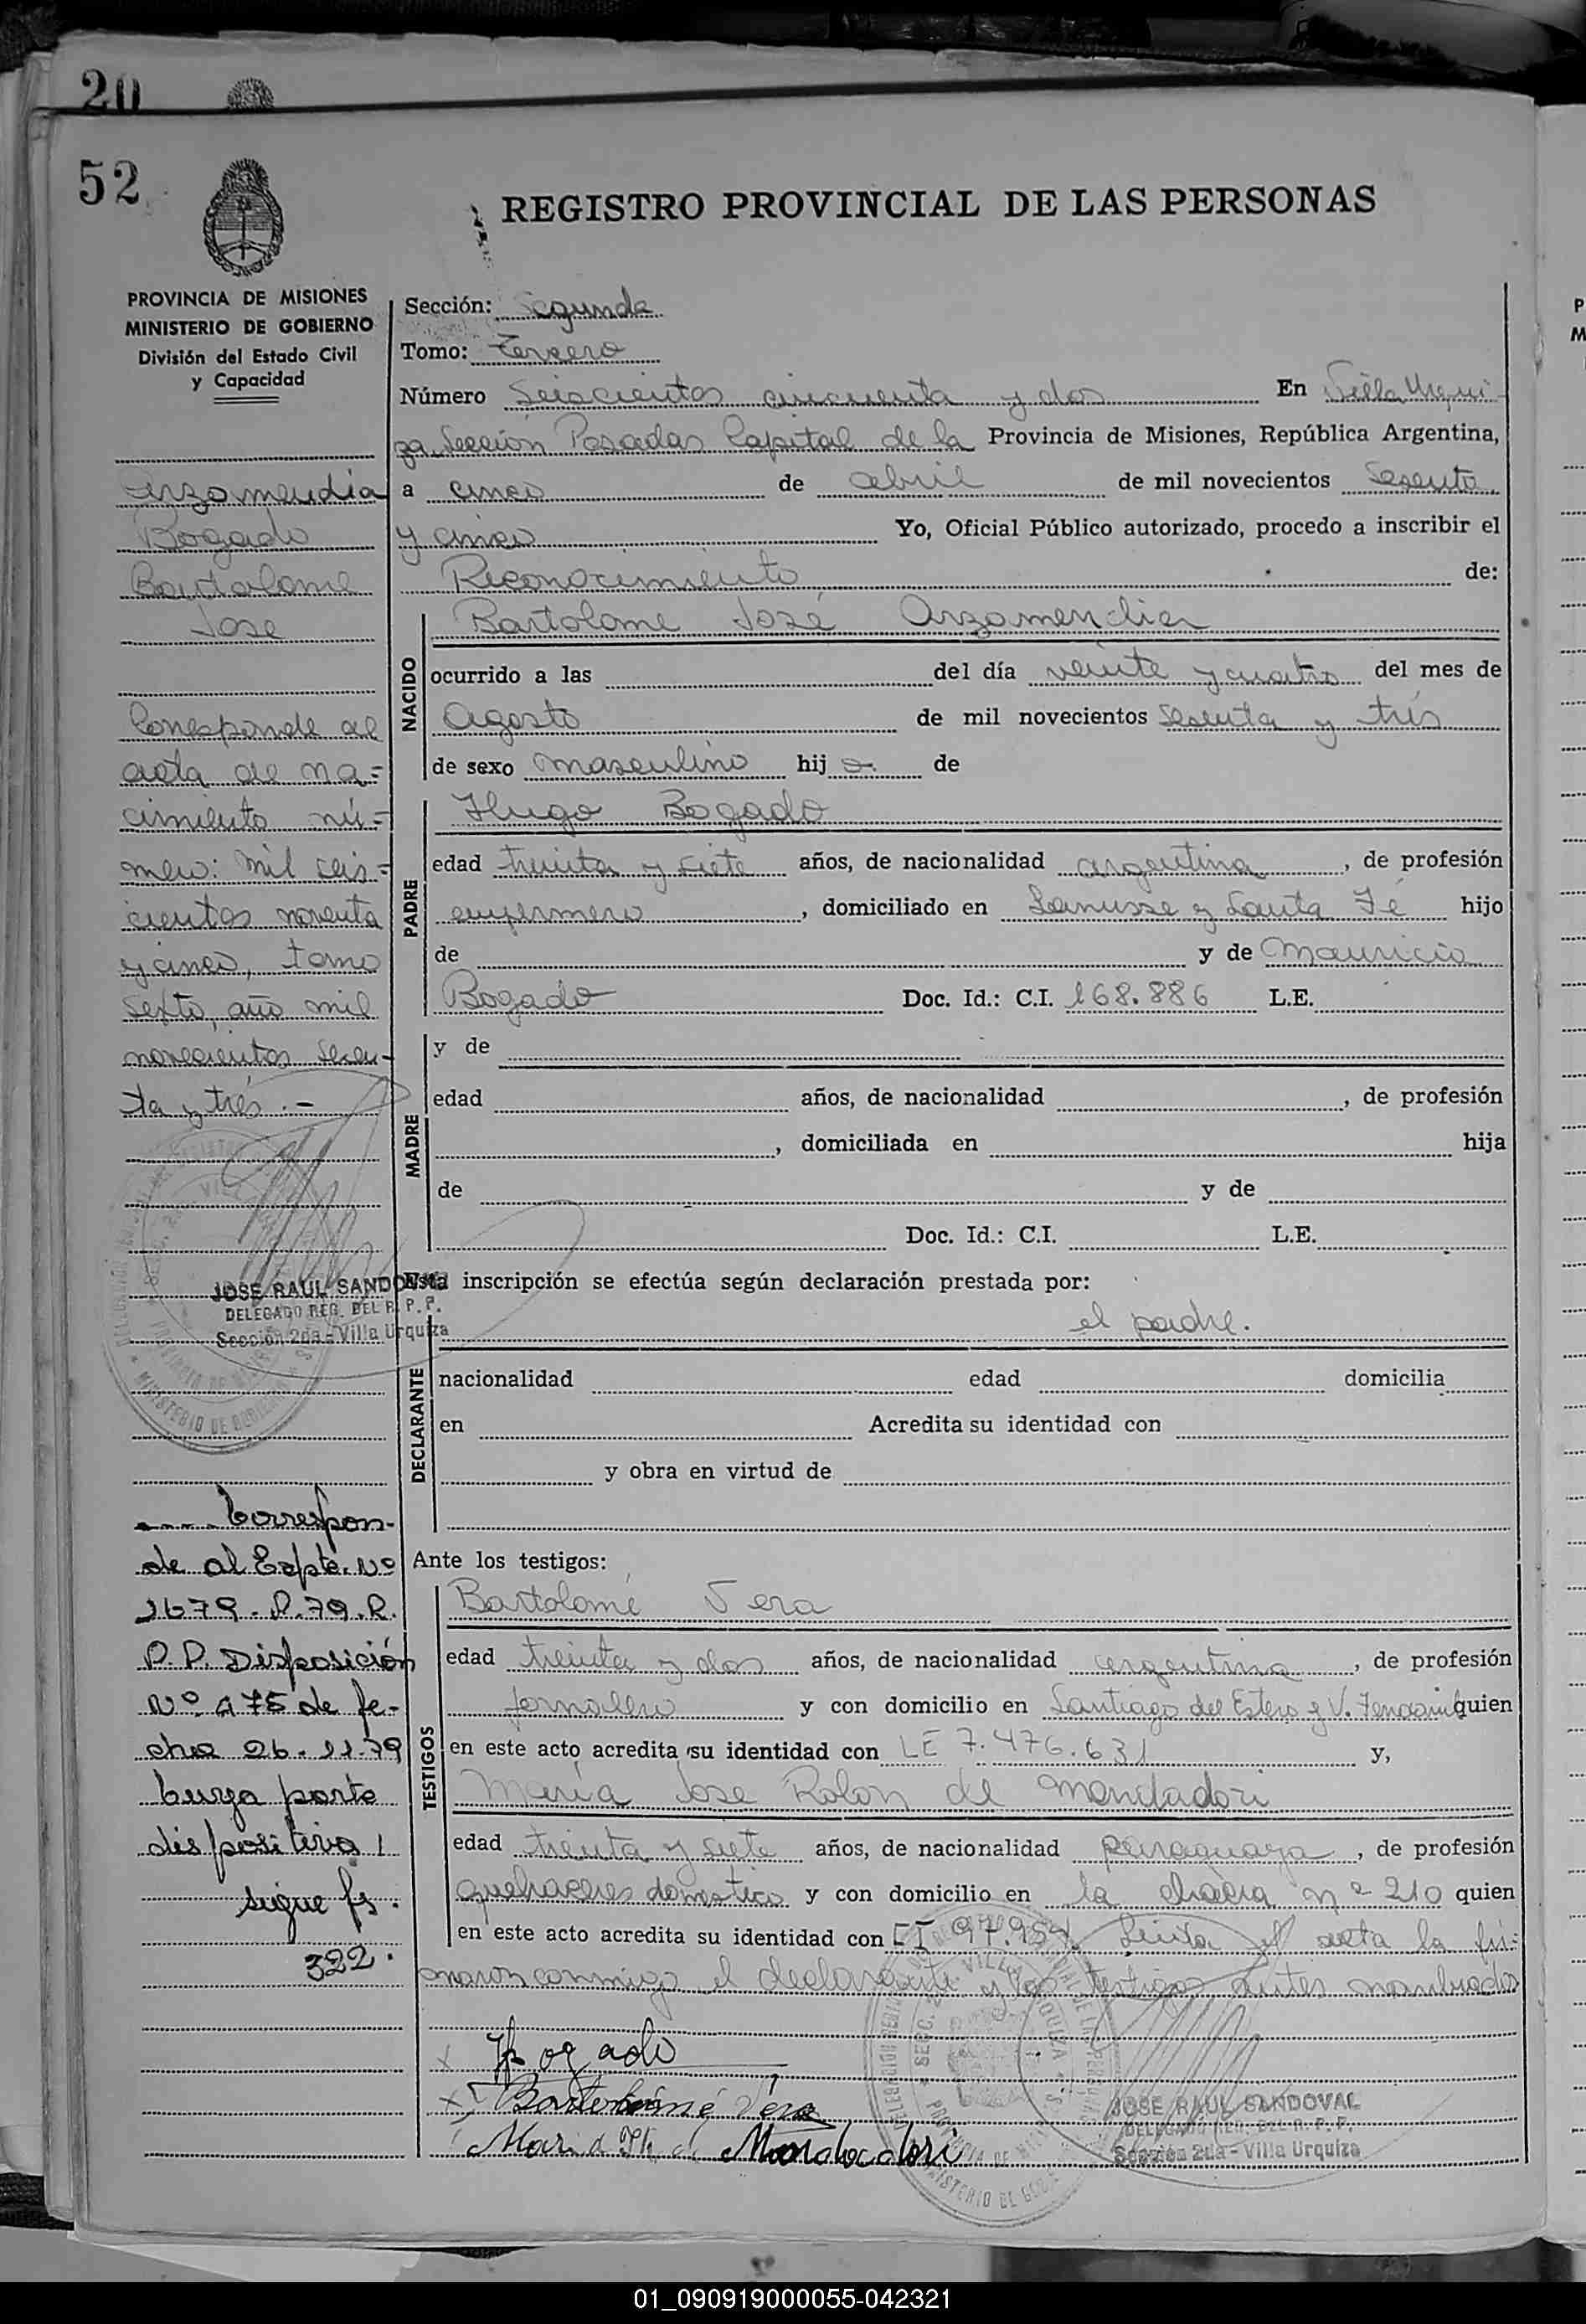 20
52
REGISTRO PROVINCIAL DE LAS PERSONAS
PROVINCIA DE MISIONES
MINISTERIO DE GOBIERNO
División del Estado Civil
y Capacidad
Arzamendia
Bogado
Bartolome
Jose
Corresponde al
acta de na=
cimiento nú=
mero: mil seis=
cientos noventa
y cinco, tomo
sexto, año mil
novecientos sesen-
ta y trés.-
JOSE RAUL SANDOVAL
DELEGADO REG. DEL R. P. P.
Sección 2da - Villa Urquiza
Correspon-
de al Expte. Nº
1679.P.79.R.
P.P. Disposición
Nº 475 de fe-
cha 26.11.79
Cuya parte
dispositiva
sigue fs.
322.
Sección: Segunda
Tomo: Tercero
Número Seiscientos cincuenta y dos En Villa Urqui
za Sección Posadas Capital de la Provincia de Misiones, República Argentina,
a cinco de abril de mil novecientos Sesenta
y cinco Yo, Oficial Público autorizado, procedo a inscribir el
Reconocimiento de:
NACIDO
Bartolome José Arzamendia
ocurrido a las del día veinte y cuatro del mes de
Agosto de mil novecientos Sesenta y trés
de sexo masculino hijo de
PADRE
Hugo Bogado
edad treinta y siete años, de nacionalidad argentina, de profesión
enfermero, domiciliado en Lanusse y Santa Fé hijo
de y de Mauricia
Bogado Doc. Id.: C.I. 168.886 L.E.
MADRE
y de
edad años, de nacionalidad , de profesión
, domiciliada en hija
de y de
Doc. Id.: C.I. L.E.
Esta inscripción se efectúa según declaración prestada por:
el padre.
DECLARANTE
nacionalidad edad domicilia
en Acredita su identidad con
y obra en virtud de
Ante los testigos:
TESTIGOS
Bartolomé Vera
edad treinta y dos años, de nacionalidad argentina, de profesión
jornalero y con domicilio en Santiago del Estero y V. quien
en este acto acredita su identidad con LE 7.476.631 y,
María Jose Rolon de Mendadori
edad treinta y siete años, de nacionalidad paraguaya, de profesión
quehaceres domestico y con domicilio en la chacra nº 210 quien
en este acto acredita su identidad con CI 97.954. Leida el acta la fir=
maron conmigo el declarante y los testigos antes nombrados
Bogado
Bartolomé Vera
Maria de Mandadori
JOSE RAUL SANDOVAL
DELEGADO REG. DEL R. P. P.
Sección 2da - Villa Urquiza
01_090919000055-042321